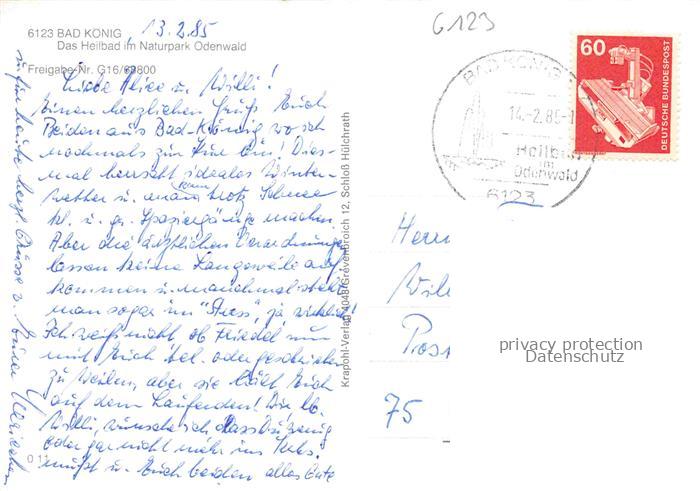 6123 BAD KÖNIG
Das Heilbad im Naturpark Odenwald
Freigabe-Nr. G16/69800
13.2.85
Liebe Alice u. Willi!
Einen herzlichen Gruß Euch
Beiden aus Bad-König wo ich
nochmals zur Kur bin! Dies-
mal herrscht ideales Winter-
wetter u. man kann trotz Schnee
kl. u. gr. Spaziergänge machen.
Aber die ärztlichen Verordnungen
lassen keine Langeweile auf-
kommen u. manchmal ist
man sogar im "Stress", ja wirklich!
Ich weiß nicht ob Friedel nun
mit Euch tel. oder geschrieben
zu Weilen, aber sie hält Euch
auf dem Laufenden! Dir lb.
Willi, wünsche ich dass Du wenig
oder gar nicht mehr ins
mußt u. Euch beiden alles Gute
für heute herzl. Grüsse v. Eurer
0 11
Krapohl-Verlag 4048 Grevenbroich 12, Schloß Hülchrath
6123
BAD KÖNIG
14.-2.85-1
Heilbad
im
Odenwald
6123
60
DEUTSCHE BUNDESPOST
Herrn
Wil
Poss
75
privacy protection
Datenschutz